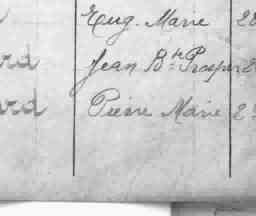 Eug. Marie 2
ard Jean Bte Prosper 2
ard Pierre Marie 2